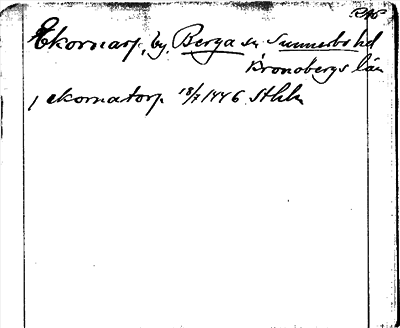 Ekornarp, by, Berga sn Sunnerbo hd
Kronobergs län
j ekornatorp 18/7 1446 Sthlm